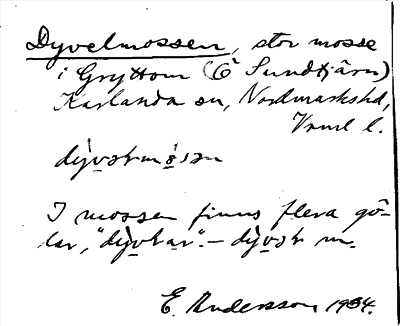 Dyvelmossen, stor mosse
i Gryttom (Ö Sundtjärn)
Karlanda sn, Nordmarkshd,
Vrml l.
I mossen finns flera gö-
lar,
E. Andersson 1934.